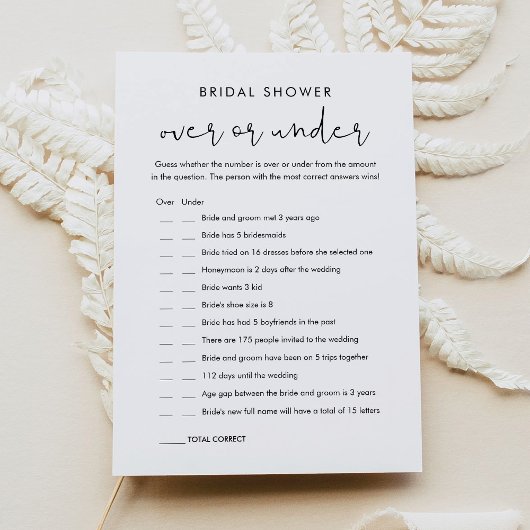 BRIDAL SHOWER
over or under
Guess whether the number is over or under from the amount
in the question. The person with the most correct answers wins!
Over Under
__ __ Bride and groom met 3 years ago
__ __ Bride has 5 bridesmaids
__ __ Bride tried on 16 dresses before she selected one
__ __ Honeymoon is 2 days after the wedding
__ __ Bride wants 3 kid
__ __ Bride's shoe size is 8
__ __ Bride has had 5 boyfriends in the past
__ __ There are 175 people invited to the wedding
__ __ Bride and groom have been on 5 trips together
__ __ 112 days until the wedding
__ __ Age gap between the bride and groom is 3 years
__ __ Bride's new full name will have a total of 15 letters
_____ TOTAL CORRECT